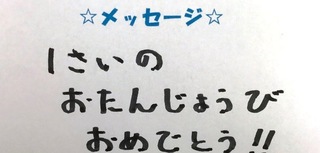 ☆メッセージ☆
1さいの
おたんじょうび
おめでとう!!